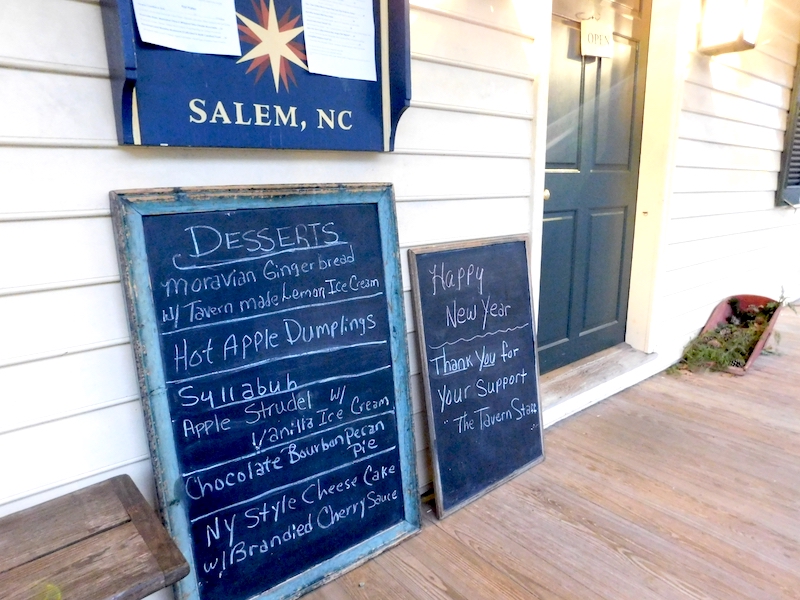 SALEM, NC
OPEN
DESSERTS
Moravian Gingerbread
w/ Tavern made Lemon Ice Cream
Hot Apple Dumplings
Syllabub
Apple Strudel w/
Vanilla Ice Cream
Chocolate Bourbon Pecan
Pie
NY Style Cheese Cake
w/ Brandied Cherry Sauce
Happy
New Year
Thank You for
Your Support
"The Tavern Staff"